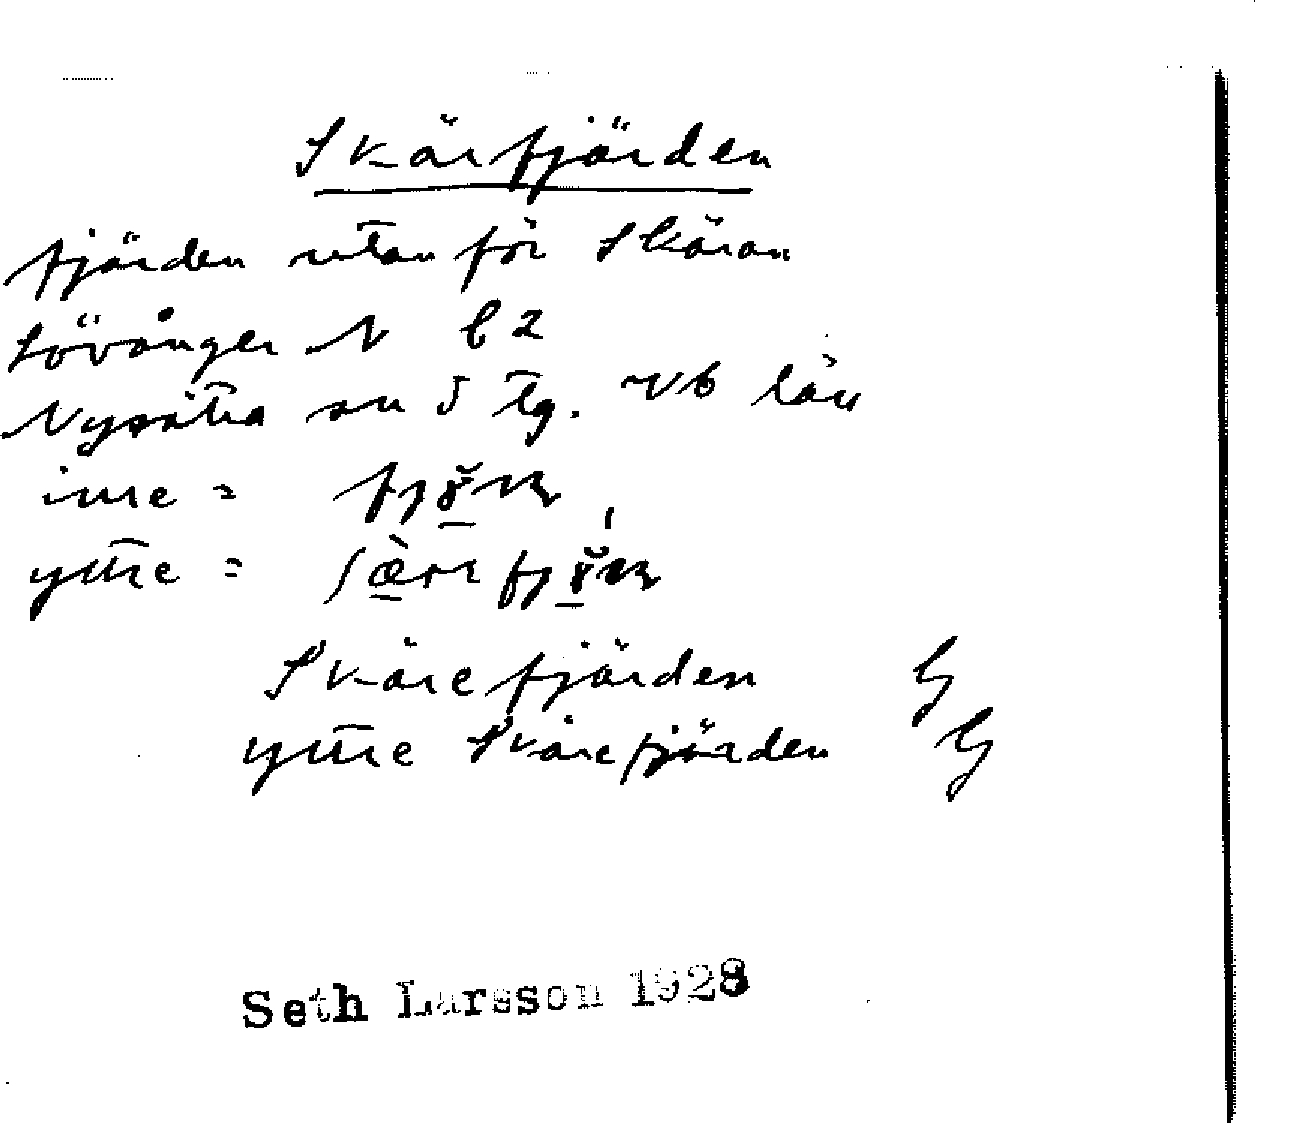 Skärfjärden
fjärden utanför Skäran
Lövånger N b2
Nysätra sn S tg. Vb län
inre =
yttre =
Skärefjärden
yttre Skärefjärden
Seth Larsson 1928